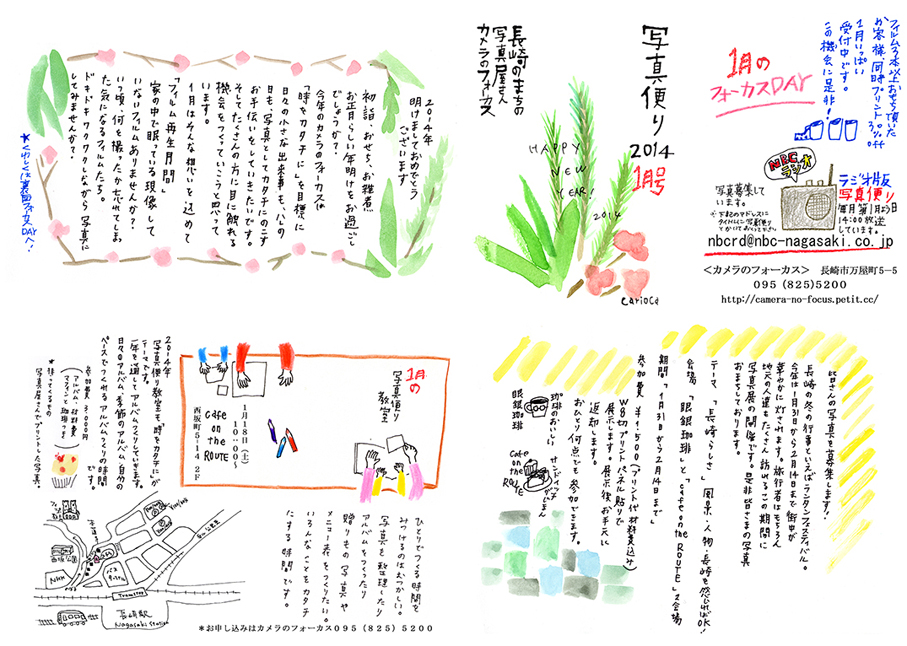 写真便り
2014
1月号
長崎のまちの
写真屋さん
カメラのフォーカス
HAPPY
NEW
YEAR!
2014
CARIOCA
フィルム3本以上お出し頂いた
お客様 同時プリント30%off
1月いっぱい
受付中です。
この機会に是非!
1月の
フォーカスDAY
NBC
ラジオ
ラジオ版
写真便り
毎月第1月曜日
14:00放送
しています。
写真募集して
います。
nbcrd@nbc-nagasaki.co.jp
<カメラのフォーカス> 長崎市万屋町5-5
095 (825)5200
http://camera-no-focus.petit.cc/
2014年
明けましておめでとう
ございます
初詣・おせち・お雑煮
お正月らしい年明けをお過ごし
でしょうか?
今年のカメラのフォーカスは
「時をカタチに」を目標に
日々の小さな出来事も、ハレの
日も、写真としてカタチにのこす
お手伝いをしていきたいです。
そしてたくさんの方に目に触れる
機会をつくっていこうと思って
います。
1月はそんな想いを込めて
「フィルム再生月間」
家の中で眠っている現像して
いないフィルムありませんか?
いつ頃、何を撮ったか忘れてしまっ
た気になるフィルムたち。
ドキドキワクワクしながら写真に
してみませんか?
*くわしくは裏面フォーカスDAYへ!
1月の
写真便り
教室
1月18日(土)
10:00〜
cafe
on
the
ROUTE
西坂町5-14 2F
2014年
写真便り教室も「時をカタチに」が
テーマです。
一年を通してアルバムづくりしていきます。
日々のアルバム、季節のアルバム、自分の
ペースでつくれるアルバムづくりの時間
です。
参加費 3000円
(アルバム・材料費
マフィンと珈琲つき)
*持ってくるもの
写真屋さんでプリントした写真
NHK
Tramstop
長崎駅
Nagasaki Station
ひとりでつくる時間を
みつけるのはむつかしい。
写真を整理したり
アルバムをつくったり
贈りもの写真や
メニュー表をつくりたい。
いろんなことをカタチ
にする時間です。
*お申し込みはカメラのフォーカス095(825)5200
皆さんの写真を募集します!
長崎の冬の行事といえばランタンフェスティバル。
今年は1月31日から2月14日まで街中が
華やかに灯されます。旅行者はもちろん
地元の人達もたくさん訪れるこの期間に
写真展の開催です。是非皆さまの写真
おまちしております。
テーマ 「長崎らしさ」 風景・人物・長崎を感じればOK!
会場 「眼鏡珈琲」と「cafe on the ROUTE」2会場
期間 「1月31日から2月14日まで」
参加費 ¥1,500(プリント代 材料費込み)
W8切プリント パネル貼りで
展示します。展示後、お手元に
返却します。
おひとり何点でも参加できます。
珈琲のおいしい
眼鏡珈琲
cafe
on
the
ROUTE